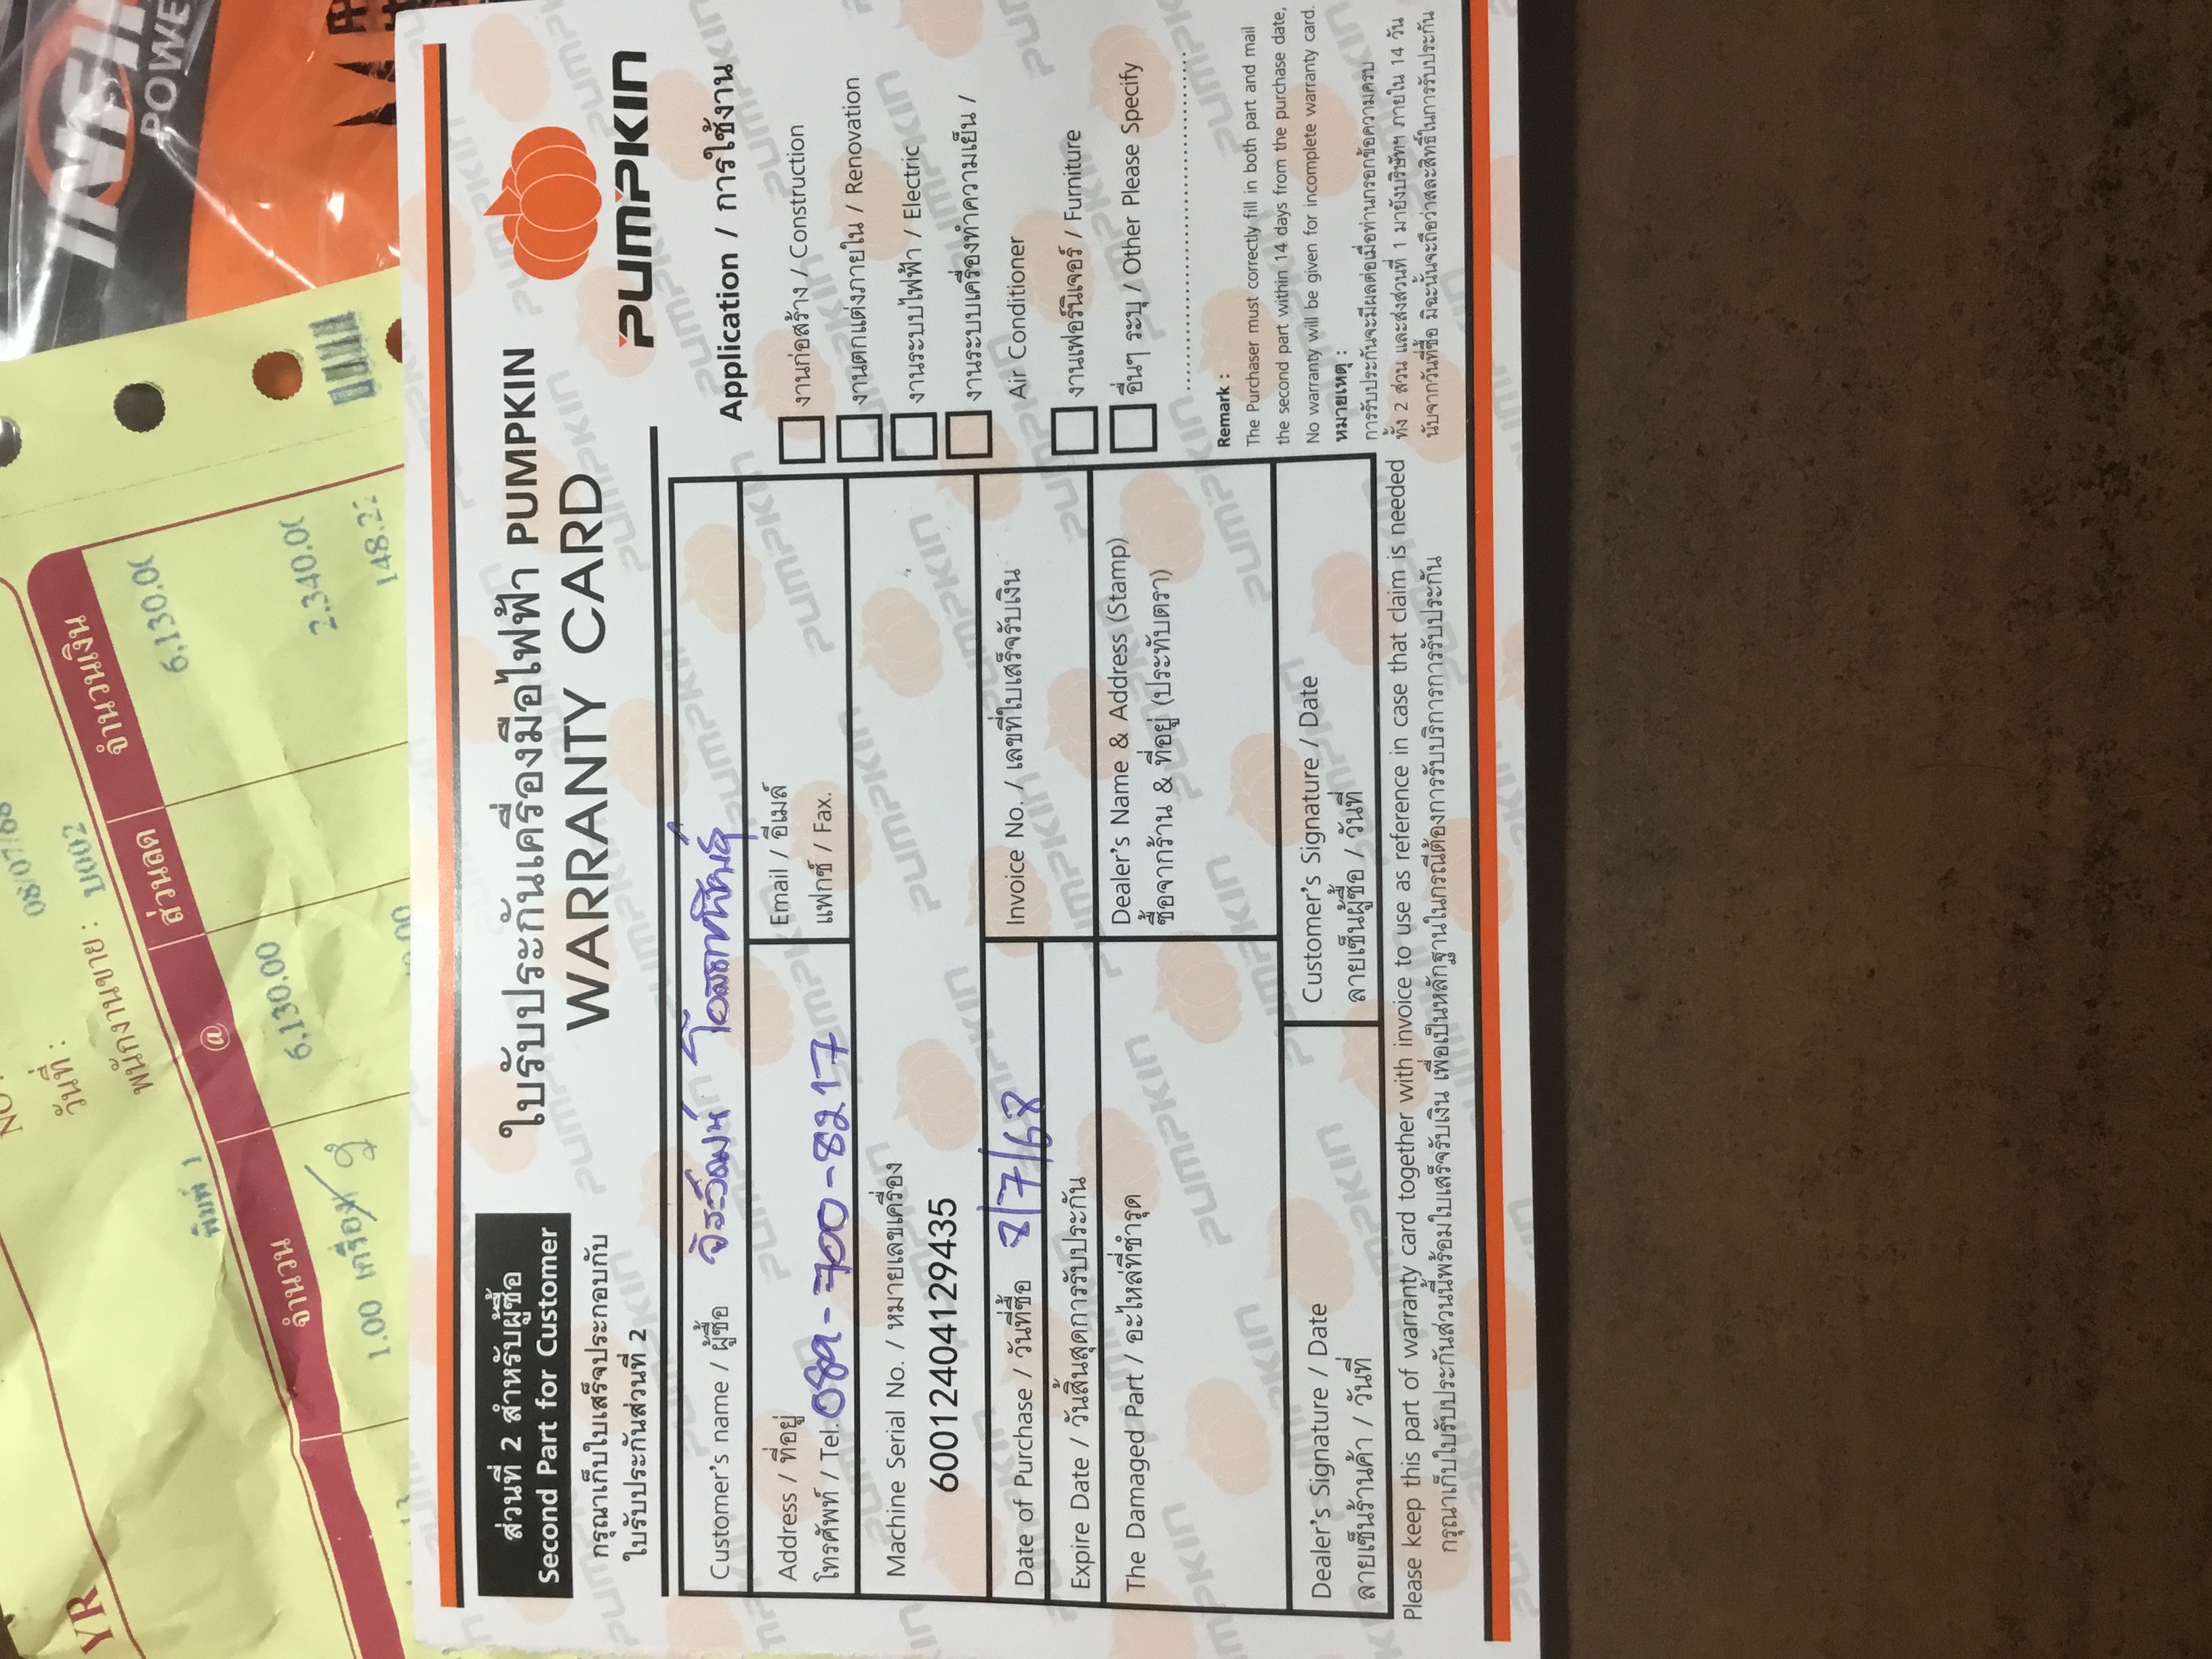 INFI
POWE
08/07/68
วันที่ :
พนักงานขาย : บ002
พิมพ์ 1
จำนวน
@
ส่วนลด
จำนวนเงิน
1.00 เครื่อง
6,130.00
6,130.0
2,340.0
148.2
VR
ส่วนที่ 2 สำหรับผู้ซื้อ
Second Part for Customer
กรุณาเก็บใบเสร็จประกอบกับ
ใบรับประกันส่วนที่ 2
ใบรับประกันเครื่องมือไฟฟ้า PUMPKIN
WARRANTY CARD
PUMPKIN
Customer's name / ผู้ซื้อ
Address / ที่อยู่
โทรศัพท์ / Tel. 089-700-8217
Email / อีเมล์
แฟกซ์ / Fax.
Machine Serial No. / หมายเลขเครื่อง
60012404129435
Date of Purchase / วันที่ซื้อ 8/7/68
Expire Date / วันสิ้นสุดการรับประกัน
Invoice No. / เลขที่ใบเสร็จรับเงิน
The Damaged Part / อะไหล่ที่ชำรุด
Dealer's Name & Address (Stamp)
ซื้อจากร้าน & ที่อยู่ (ประทับตรา)
Dealer's Signature / Date
ลายเซ็นร้านค้า / วันที่
Customer's Signature / Date
ลายเซ็นผู้ซื้อ / วันที่
Application / การใช้งาน
งานก่อสร้าง / Construction
งานตกแต่งภายใน / Renovation
งานระบบไฟฟ้า / Electric
งานระบบเครื่องทำความเย็น /
Air Conditioner
งานเฟอร์นิเจอร์ / Furniture
อื่นๆ ระบุ / Other Please Specify
Remark :
The Purchaser must correctly fill in both part and mail
the second part within 14 days from the purchase date,
No warranty will be given for incomplete warranty card.
หมายเหตุ :
การรับประกันจะมีผลต่อเมื่อท่านกรอกข้อความครบ
ทั้ง 2 ส่วน และส่งส่วนที่ 1 มายังบริษัทฯ ภายใน 14 วัน
นับจากวันที่ซื้อ มิฉะนั้นจะถือว่าสละสิทธิ์ในการรับประกัน
Please keep this part of warranty card together with invoice to use as reference in case that claim is needed
กรุณาเก็บใบรับประกันส่วนนี้พร้อมใบเสร็จรับเงิน เพื่อเป็นหลักฐานในกรณีต้องการรับบริการการรับประกัน